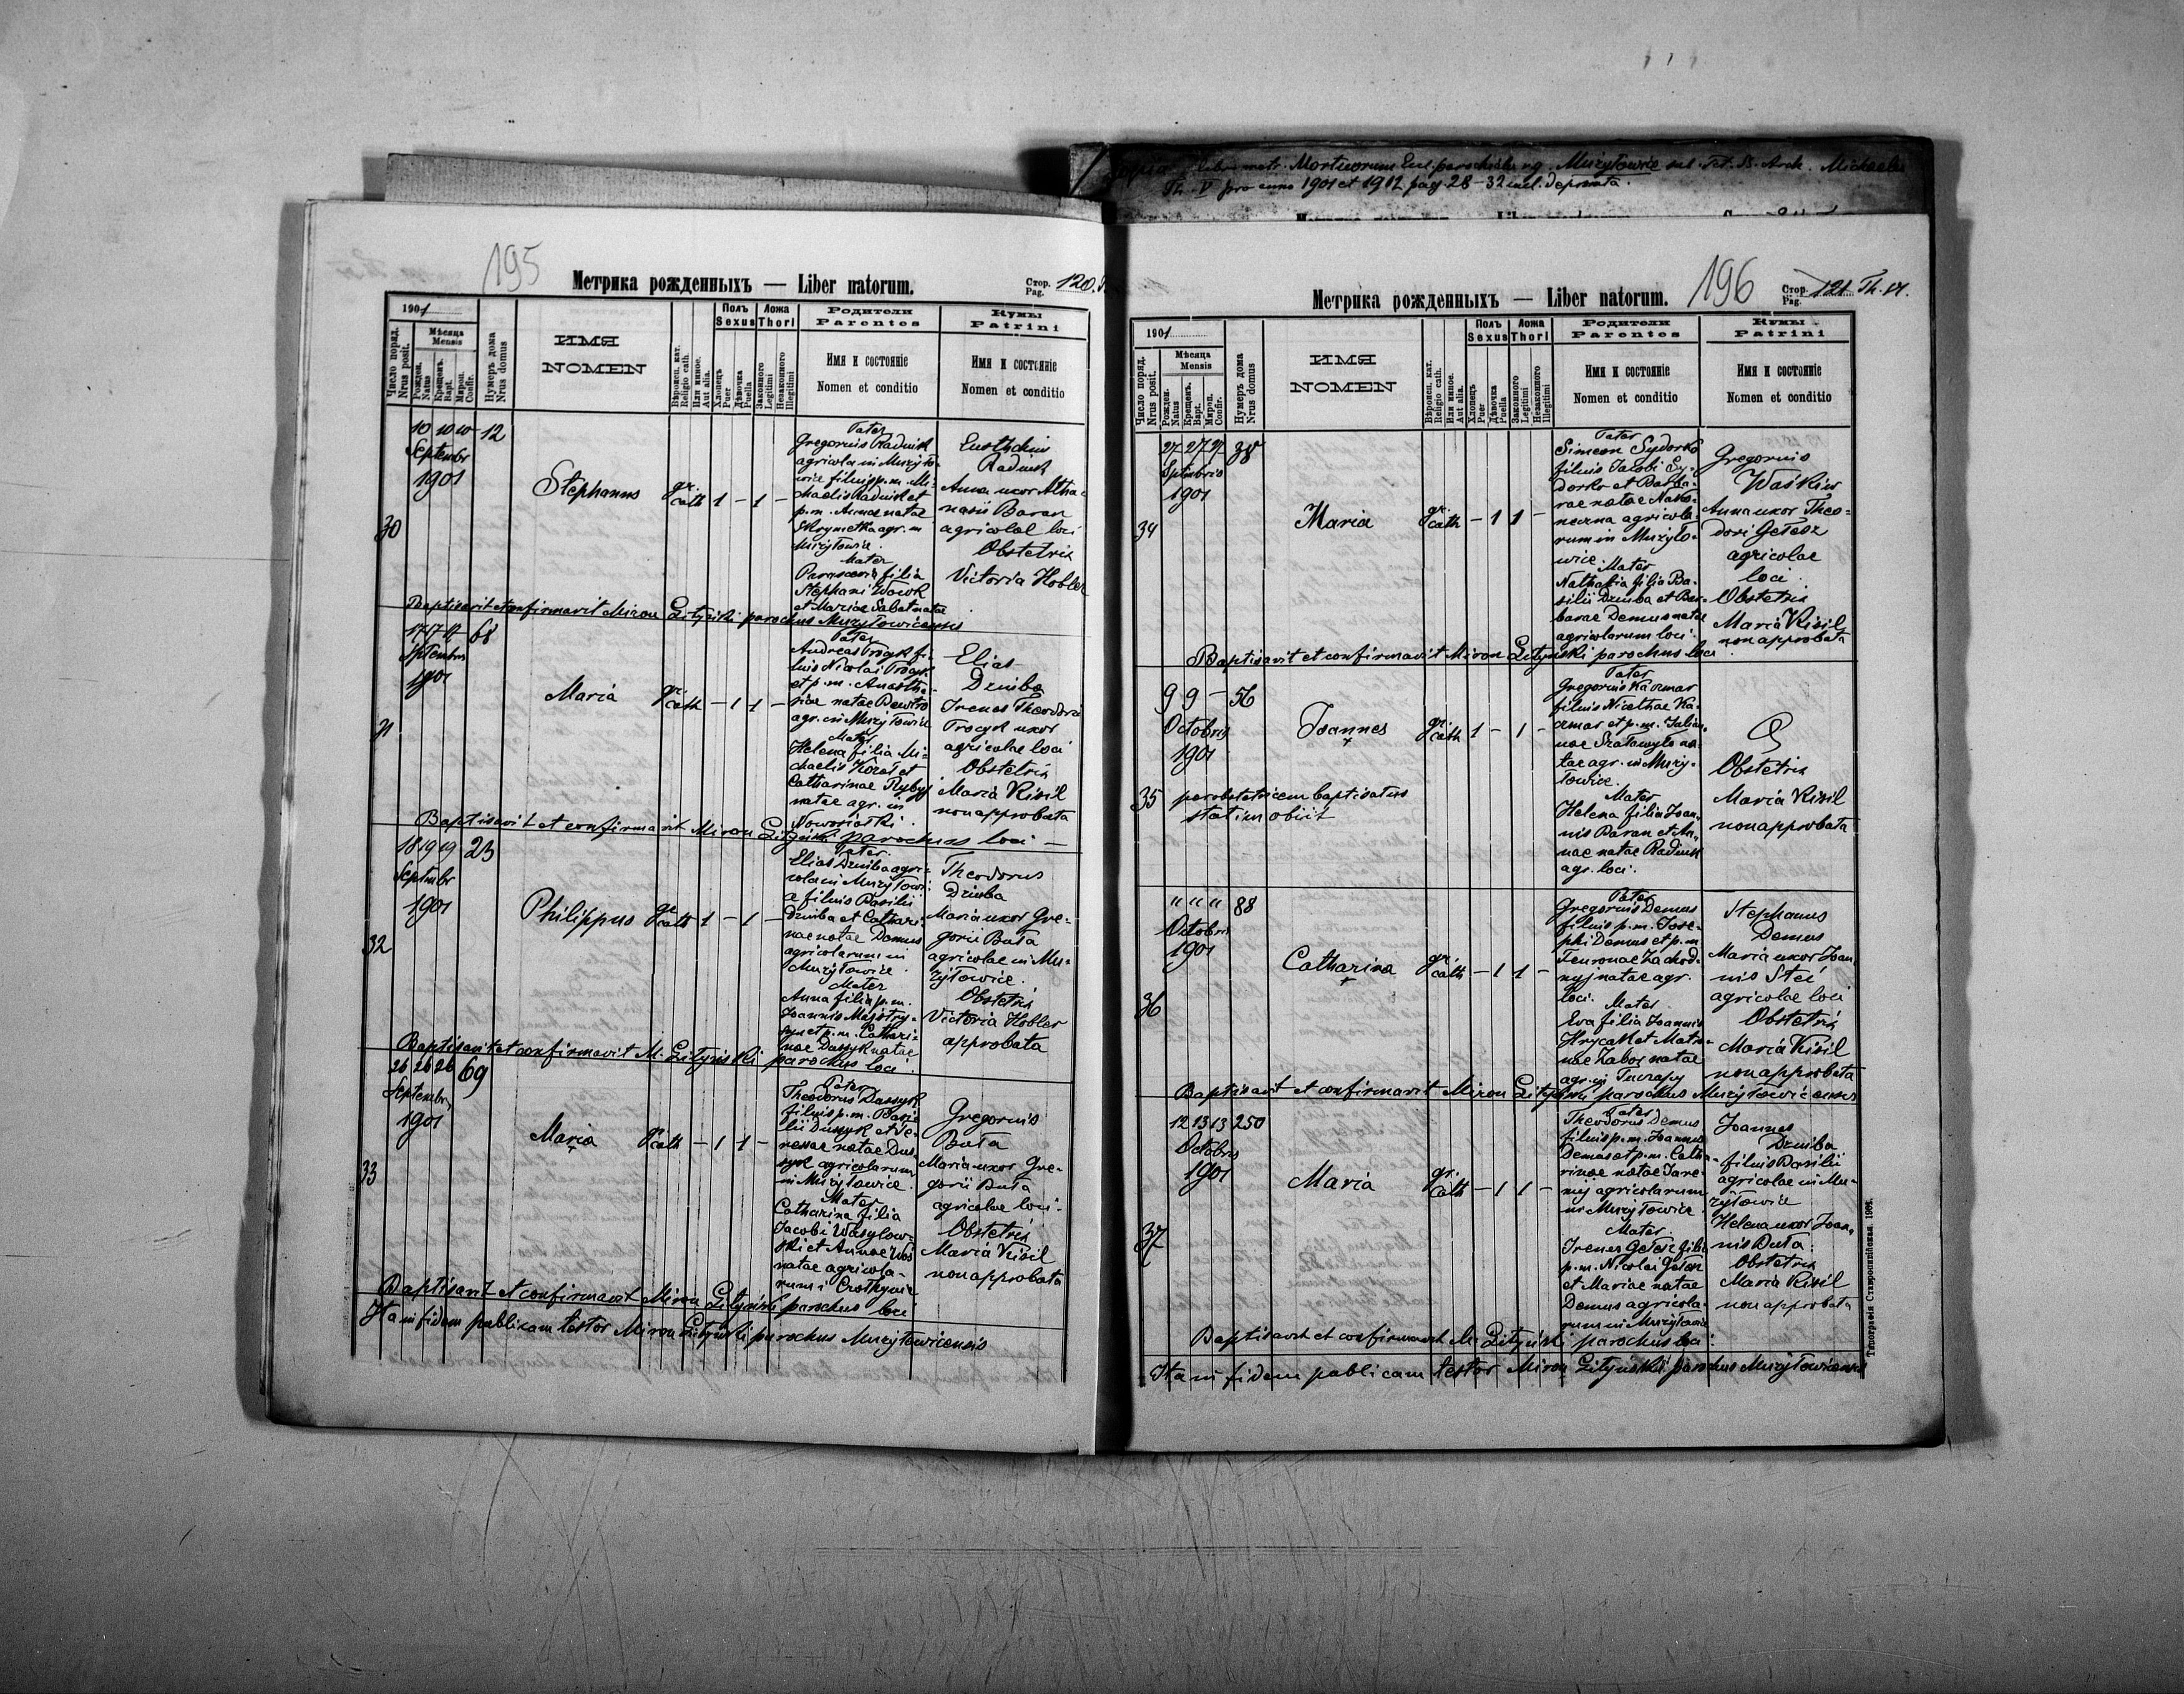 libri metr. Mortuorum Eccl. parochialis r.g. Mużyłowice sub Tit. S. Arch. Michaelis
Th. V pro anno 1901 et 1912 pag. 28-32 incl. deprompta.
195
Метрика рожденныхъ — Liber natorum.
Стор. Pag. 120.
1901
Число поряд. Nrus posit.
Мѣсяца Mensis
Рожден. Natus
Крещенъ. Bapt.
Мѵроп. Confir.
Нумеръ дома Nrus domus
ИМЯ
NOMEN
Вѣроисп. кат. Religio cath.
Или иное. Aut alia.
Полъ Sexus
Хлопець Puer
Дѣвочка Puella
Ложа Thori
Законного Legitimi
Незаконного Illegitimi
Родители
Parentes
Имя и состоянiе
Nomen et conditio
Кумы
Patrini
Имя и состоянiе
Nomen et conditio
30
10 10 10 12
Septembr
1901
Stephanus
gr. cath 1 - 1 -
Pater
Gregorius Radiuk
agricola in Mużyło-
wice filius p.m. Mi-
chaelis Radiuk et
p.m. Annae natae
Skrymetka agr. in
Mużyłowice.
Mater
Parascevia filia
Stephani Wowk
et Mariae Sabat natae
Eusthachius
Radiuk
Anna uxor Atha-
nasii Baran
agricolae loci
Obstetrix
Victoria Hobler
Baptisavit et confirmavit Miron Lityński parochus Mużyłowicensis
31
17 17 17 68
Septembris
1901
Maria
gr. cath - 1 1 -
Pater
Andreas Trocyk fi-
lius Nicolai Trocyk
et p.m. Anasta-
siae natae Dmitro
agr. in Mużyłowice
Mater
Helena filia Mi-
chaelis Kozał et
Catharinae Rybyj
natae agr. in
Nowosiółki.
Elias
Dziuba
Irenes Theodori
Trocyk uxor
agricolae loci
Obstetrix
Maria Kisil
non approbata
Baptisavit et confirmavit Miron Lityński parochus loci —
32
18 19 19 23
Septembr
1901
Philippus
gr. cath 1 - 1 -
Pater
Elias Dziuba agri-
cola in Mużyłowi-
ce filius Basilii
Dziuba et Cathari-
nae natae Demus
agricolarum in
Mużyłowice.
Mater
Anna filia p.m.
Joannis Majstry-
szyn et p.m. Cathari-
nae Dassyk natae
Theodorus
Dziuba
Maria uxor Gre-
gorii Buta
agricolae in Mu-
żyłowice.
Obstetrix
Victoria Hobler
approbata
Baptisavit et confirmavit M. Lityński parochus loci.
33
26 26 26 69
Septembr
1901
Maria
gr. cath - 1 1 -
Pater
Theodorus Dassyk
filius p.m. Basi-
lii Dussyk et Ire-
neae natae Dus-
syk agricolarum
in Mużyłowice.
Mater
Catharina filia
Jacobi Wasylow-
ski et Annae Woś
natae agricola-
rum
Gregorius
Buta
Maria uxor Gre-
gorii Buta
agricolae loci.
Obstetrix
Maria Kisil
non approbata
Baptisavit et confirmavit Miron Lityński parochus loci
Ita in fidem publicam testor Miron Lityński parochus Mużyłowicensis
196
Метрика рожденныхъ — Liber natorum.
Стор. Pag. 121 Th. VI.
1901
Число поряд. Nrus posit.
Мѣсяца Mensis
Рожден. Natus
Крещенъ. Bapt.
Мѵроп. Confir.
Нумеръ дома Nrus domus
ИМЯ
NOMEN
Вѣроисп. кат. Religio cath.
Или иное. Aut alia.
Полъ Sexus
Хлопець Puer
Дѣвочка Puella
Ложа Thori
Законного Legitimi
Незаконного Illegitimi
Родители
Parentes
Имя и состоянiе
Nomen et conditio
Кумы
Patrini
Имя и состоянiе
Nomen et conditio
34
27 27 27 38
Septembris
1901
Maria
gr. cath - 1 1 -
Pater
Simeon Sydorko
filius Jacobi Sy-
dorko et Barba-
rae natae Nako-
neczna agricola-
rum in Mużyło-
wice. Mater
Nathalia filia Ba-
silii Dziuba et Bar-
barae Demus natae
agricolarum loci.
Gregorius
Waśkiw
Anna uxor Theo-
dori Gełesz
agricolae
loci.
Obstetrix
Maria Kisil
non approbata
Baptisavit et confirmavit Miron Lityński parochus loci.
35
9 9 - 56
Octobris
1901
Joannes
gr. cath 1 - 1 -
per obstetricem baptisatus
statim obiit
Pater
Gregorius Kaczmar
filius Nicetae Ka-
czmar et p.m. Julian-
nae Szałowyło na-
tae agr. in Muży-
łowice.
Mater
Helena filia Joan-
nis Baran et An-
nae natae Radiuk
agr. loci.
Obstetrix
Maria Kisil
non approbata
36
" " " 88
Octobris
1901
Catharina
gr. cath - 1 1 -
Pater
Gregorius Demus
filius p.m. Jose-
phi Demus et p.m.
Feuronae Zachod-
nyj natae agr.
loci. Mater
Eva filia Joannis
Hrycak et Matro-
nae Zaboj natae
agr. in Tuczapy
Stephanus
Demus
Maria uxor Joan-
nis Steć
agricolae loci
Obstetrix
Maria Kisil
non approbata
Baptisavit et confirmavit Miron Lityński parochus Mużyłowicensis
37
12 13 13 250
Octobris
1901
Maria
gr. cath - 1 1 -
Pater
Theodorus Demus
filius p.m. Joannis
Demus et p.m. Catha-
rinae natae Jare-
mij agricolarum
in Mużyłowice.
Mater
Irenes Gełesz filia
p.m. Nicolai Gełesz
et Mariae natae
Demus agricola-
rum in Mużyłowice
Joannes
Dziuba
filius Basilii
agricolae in Mu-
żyłowice
Helena uxor Joan-
nis Buta.
Obstetrix
Maria Kisil
non approbata
Baptisavit et confirmavit M. Lityński parochus loci.
Ita in fidem publicam testor Miron Lityński parochus Mużyłowicensis